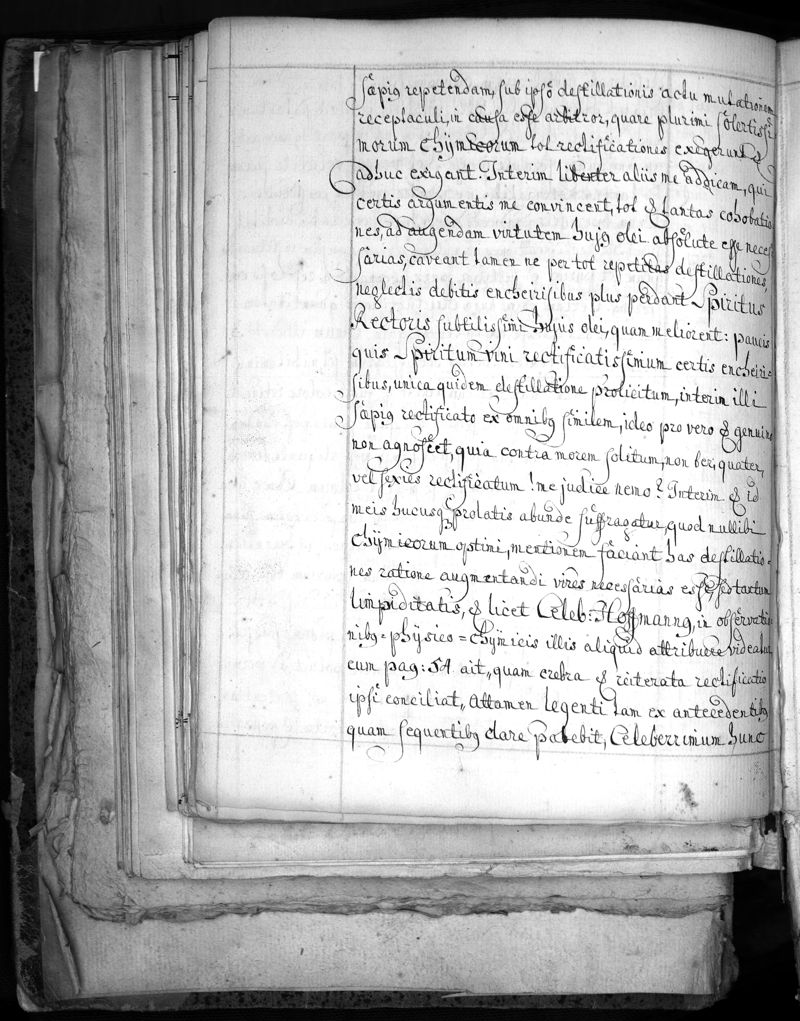 sæpiꝰ repetendam, sub ipso destillationis actu mutationem
receptaculi, in causa esse arbitror, quare plurimi solertissi
morum Chÿmicorum tot rectificationes exegerunt &
adhuc exigant. Interim libenter aliis me addicam, qui
certis argumentis me convincent, tot & tantas cohobatio
nes, ad augendam virtutem hujꝰ olei absolute esse neces
sarias, caveant tamen ne per tot repetitas destillationes,
neglectis debitis encheirisibus plus perdant Spiritus
Rectoris subtilissimi hujus olei, quam meliorent: paucis
quis Spiritum vini rectificatissimum certis encheiri=
sibus, unica quidem destillatione prolicitum, interim illi
sæpiꝰ rectificato ex omnibꝰ similem, ideo pro vero & genuino
non agnoscet, quia contra morem solitum, non ter, quater,
vel sexies rectificatum! me judice nemo? Interim & id
meis hucusq; prolatis abunde suffragatur, quod nullibi
Chÿmicorum optimi, mentionem faciant has destillatio=
nes ratione augmentandi vires necessarias esse, sed tantum
limpiditatis, & licet Celeb: Hoffmannꝰ, in observatio
nibꝰ=phÿsico=chÿmicis illis aliquid attribuere videatur
cum pag: 54 ait,, quam crebra & reiterata rectificatio
ipsi conciliat,, Attamen legenti tam ex antecedentibꝰ
quam sequentibꝰ clare patebit, Celeberrimum hunc